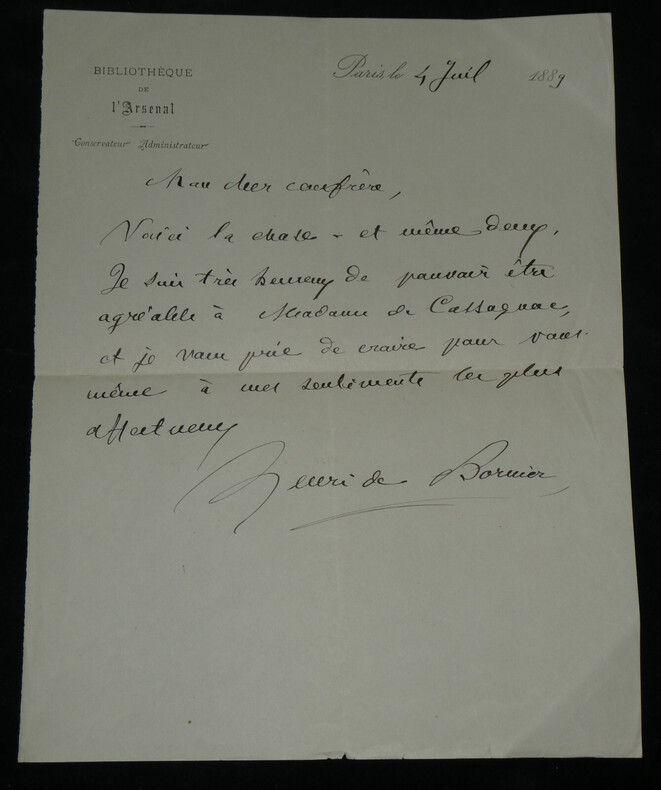 BIBLIOTHÈQUE
DE
l'Arsenal
Conservateur Administrateur
Paris, le 4 Juil 1889
Mon cher confrère,
Voici la chose - et même deux.
Je suis très heureux de pouvoir être
agréable à Madame de Cassagnac,
et je vous prie de croire pour vous-
même à mes sentiments les plus
affectueux
Henri de Bornier